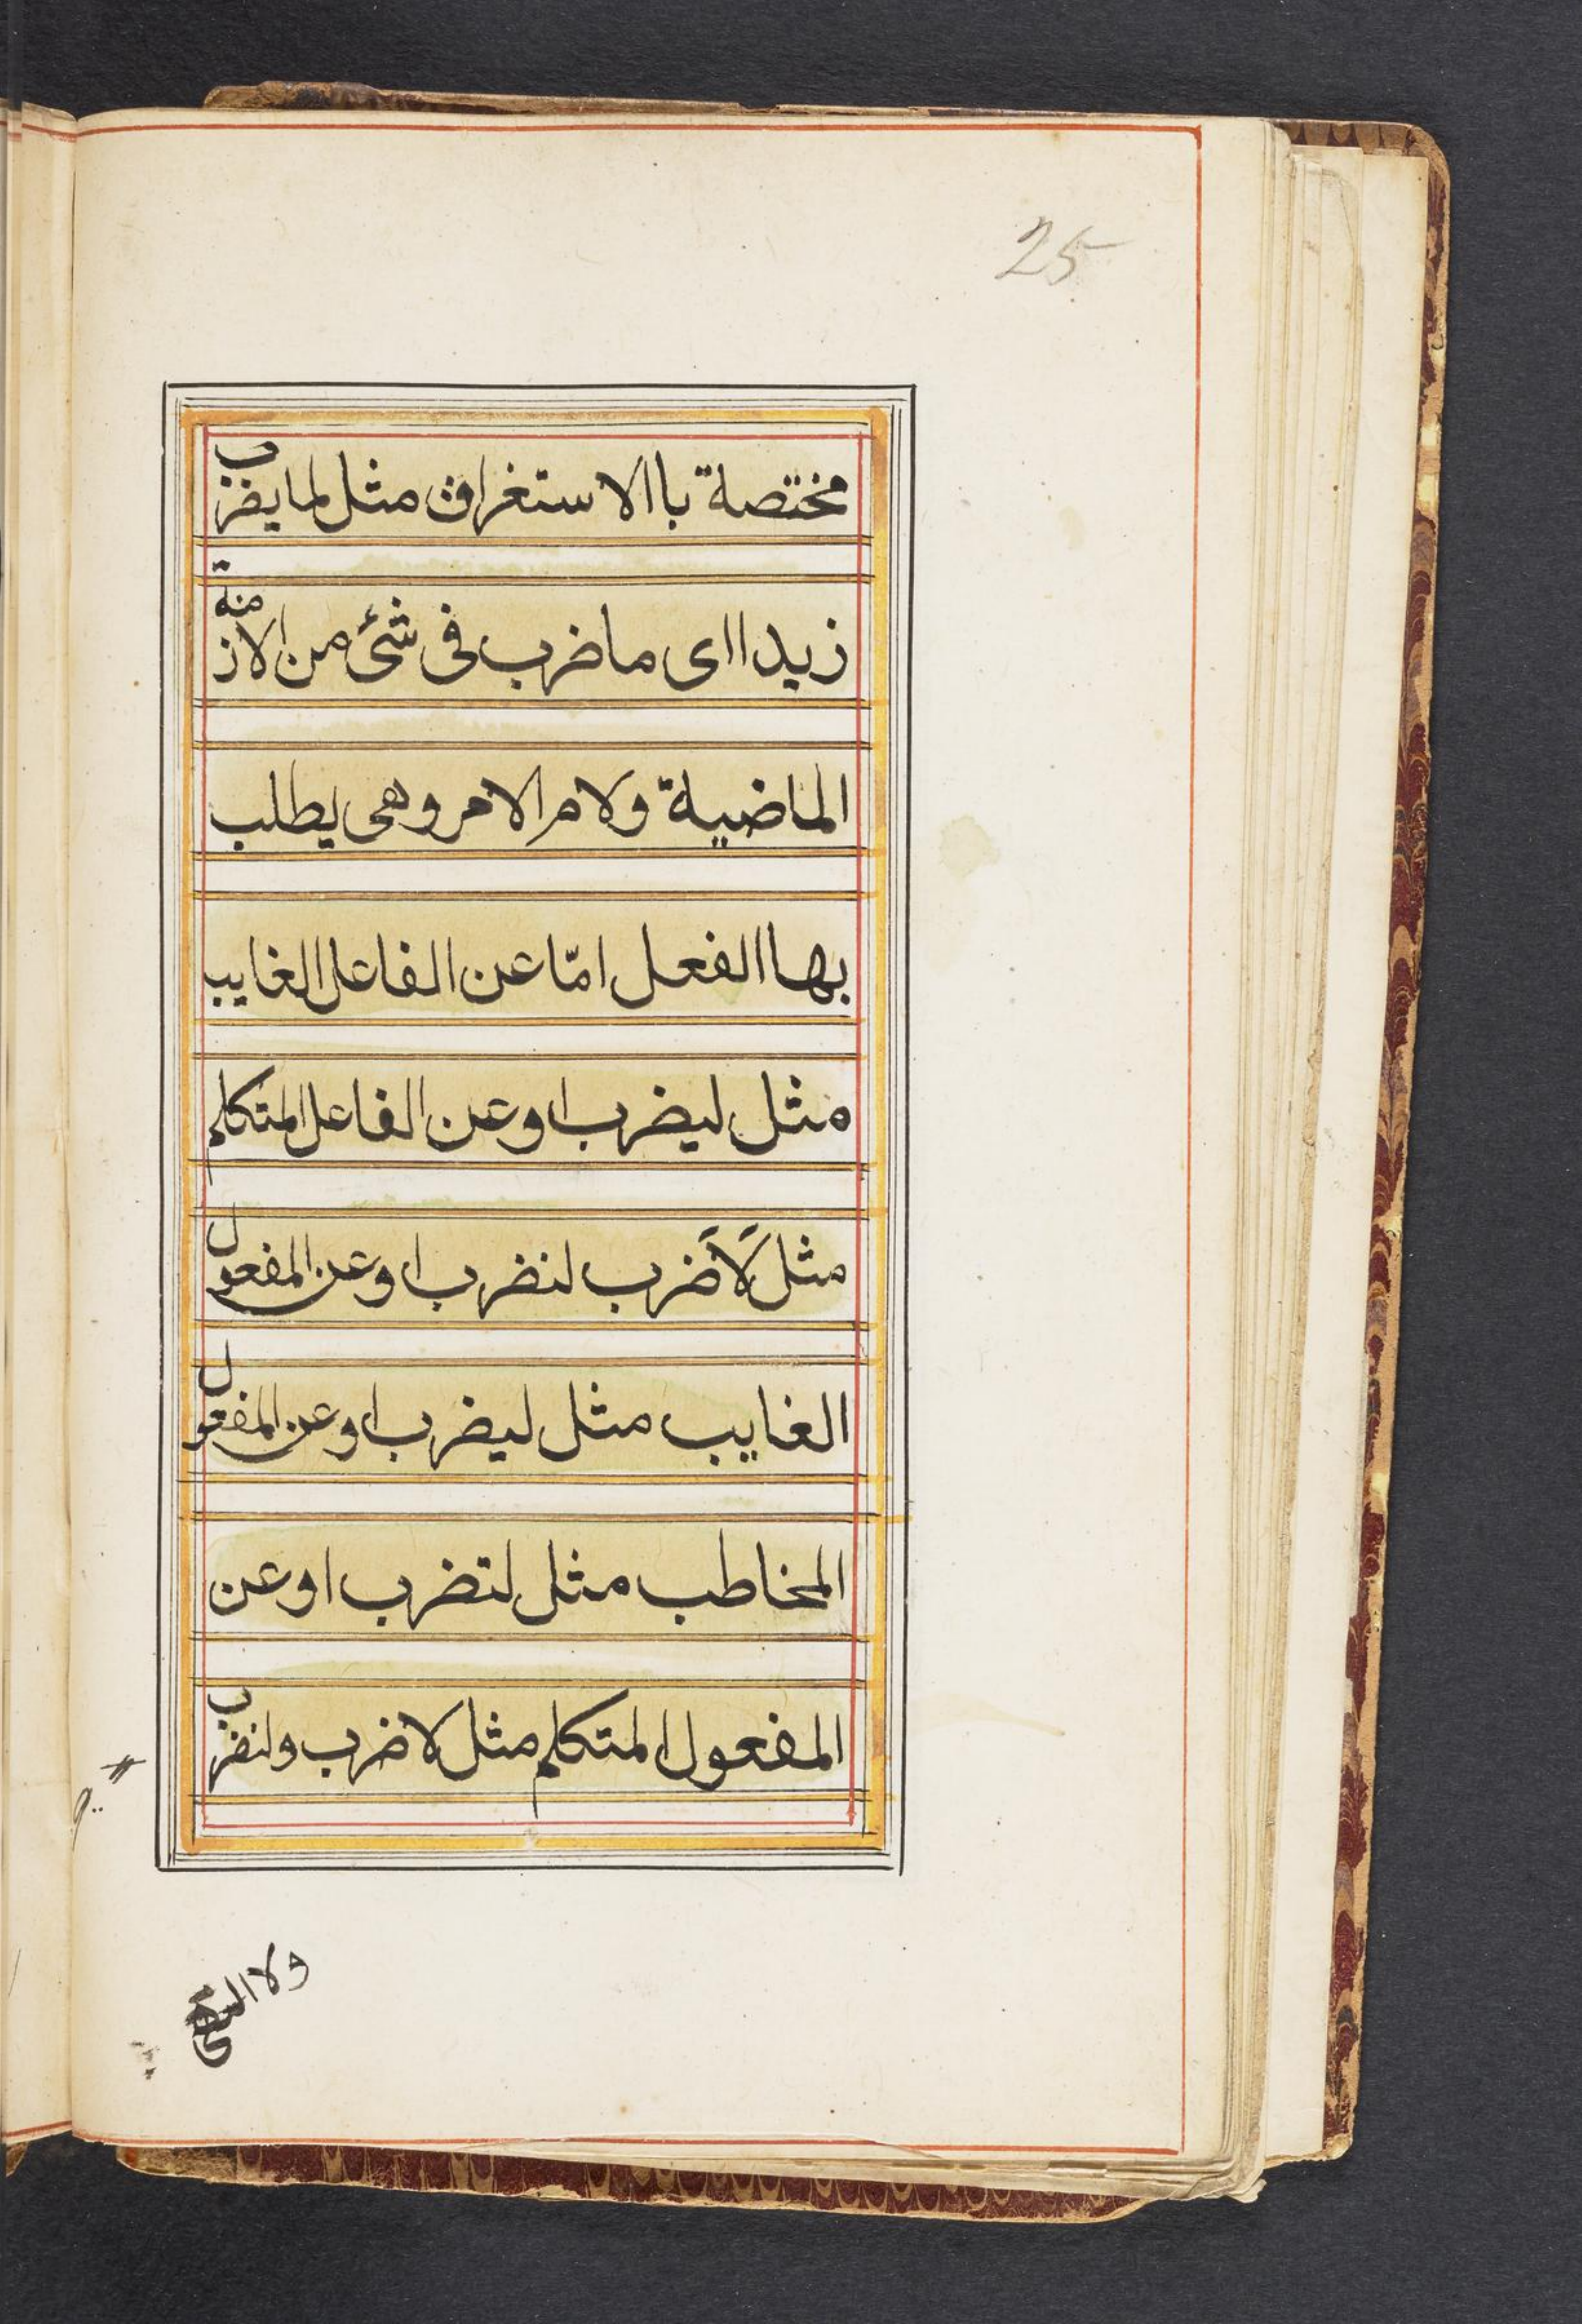 25
مختصة باالاستغراق مثل لمايضرب
زيدااى ماضرب فى شئ من الازمنة
الماضية ولام الامر وهى يطلب
بهاالفعل امّا عن الفاعل الغايب
مثل ليضرب او عن الفاعل المتكلم
مثل لَاَضرب لنضرب او عن المفعول
الغايب مثل ليضرب او عن المفعول
المخاطب مثل لتضرب او عن
المفعول المتكلم مثل لاضرب ولنضرب
ولا